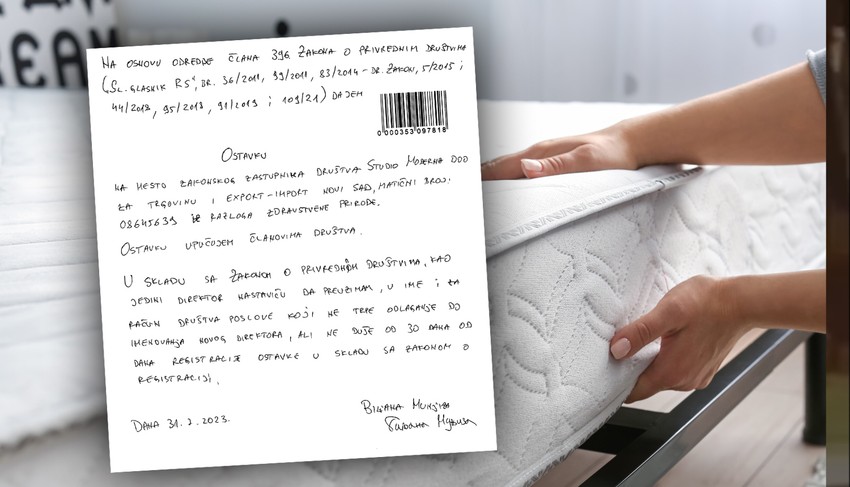 EAM
NA OSNOVU ODREDBE ČLANA 396. ZAKONA O PRIVREDNIM DRUŠTVIMA
("SL. GLASNIK RS", BR. 36/2011, 99/2011, 83/2014 - DR. ZAKON, 5/2015 I
44/2018, 95/2018, 91/2019 I 109/21) DAJEM
0 000353 097818
OSTAVKU
NA MESTO ZAKONSKOG ZASTUPNIKA DRUŠTVA STUDIO MODERNA DOO
ZA TRGOVINU I EXPORT-IMPORT NOVI SAD, MATIČNI BROJ:
08645639 IZ RAZLOGA ZDRAVSTVENE PRIRODE.
OSTAVKU UPUĆUJEM ČLANOVIMA DRUŠTVA.
U SKLADU SA ZAKONOM O PRIVREDNIM DRUŠTVIMA, KAO
JEDINI DIREKTOR NASTAVIĆU DA PREUZIMAM, U IME I ZA
RAČUN DRUŠTVA POSLOVE KOJI NE TRPE ODLAGANJE DO
IMENOVANJA NOVOG DIREKTORA, ALI NE DUŽE OD 30 DANA OD
DANA REGISTRACIJE OSTAVKE U SKLADU SA ZAKONOM O
REGISTRACIJI.
DANA 31.7.2023.
BILJANA